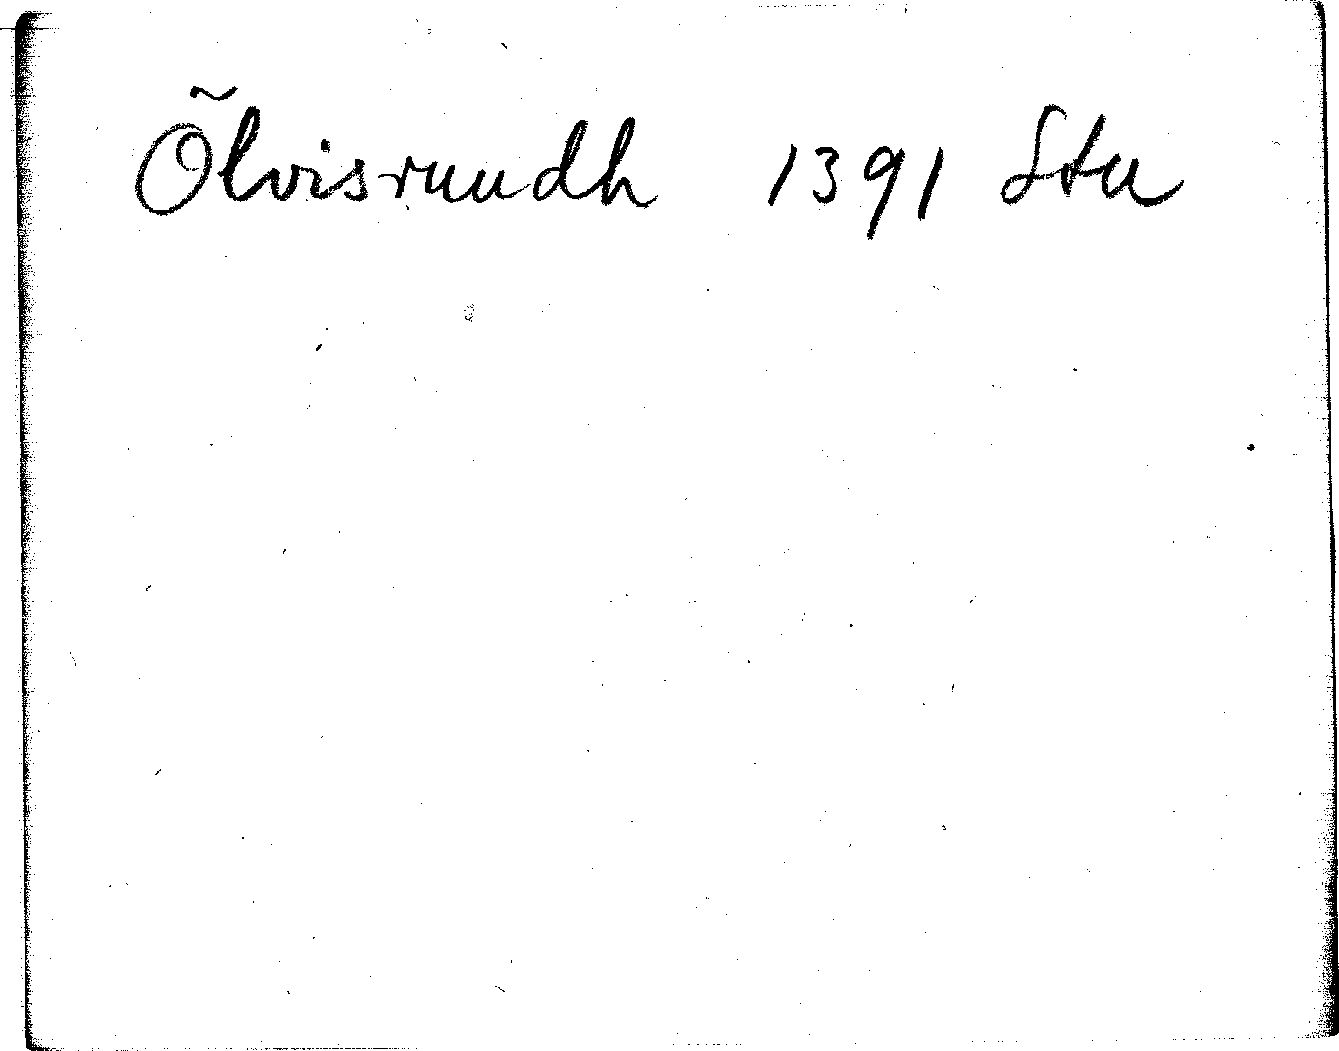 Õlvisruudh 1391 Stu